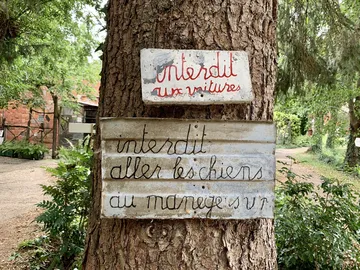 interdit
aux voitures
interdit
aller les chiens
au manege s.v.p